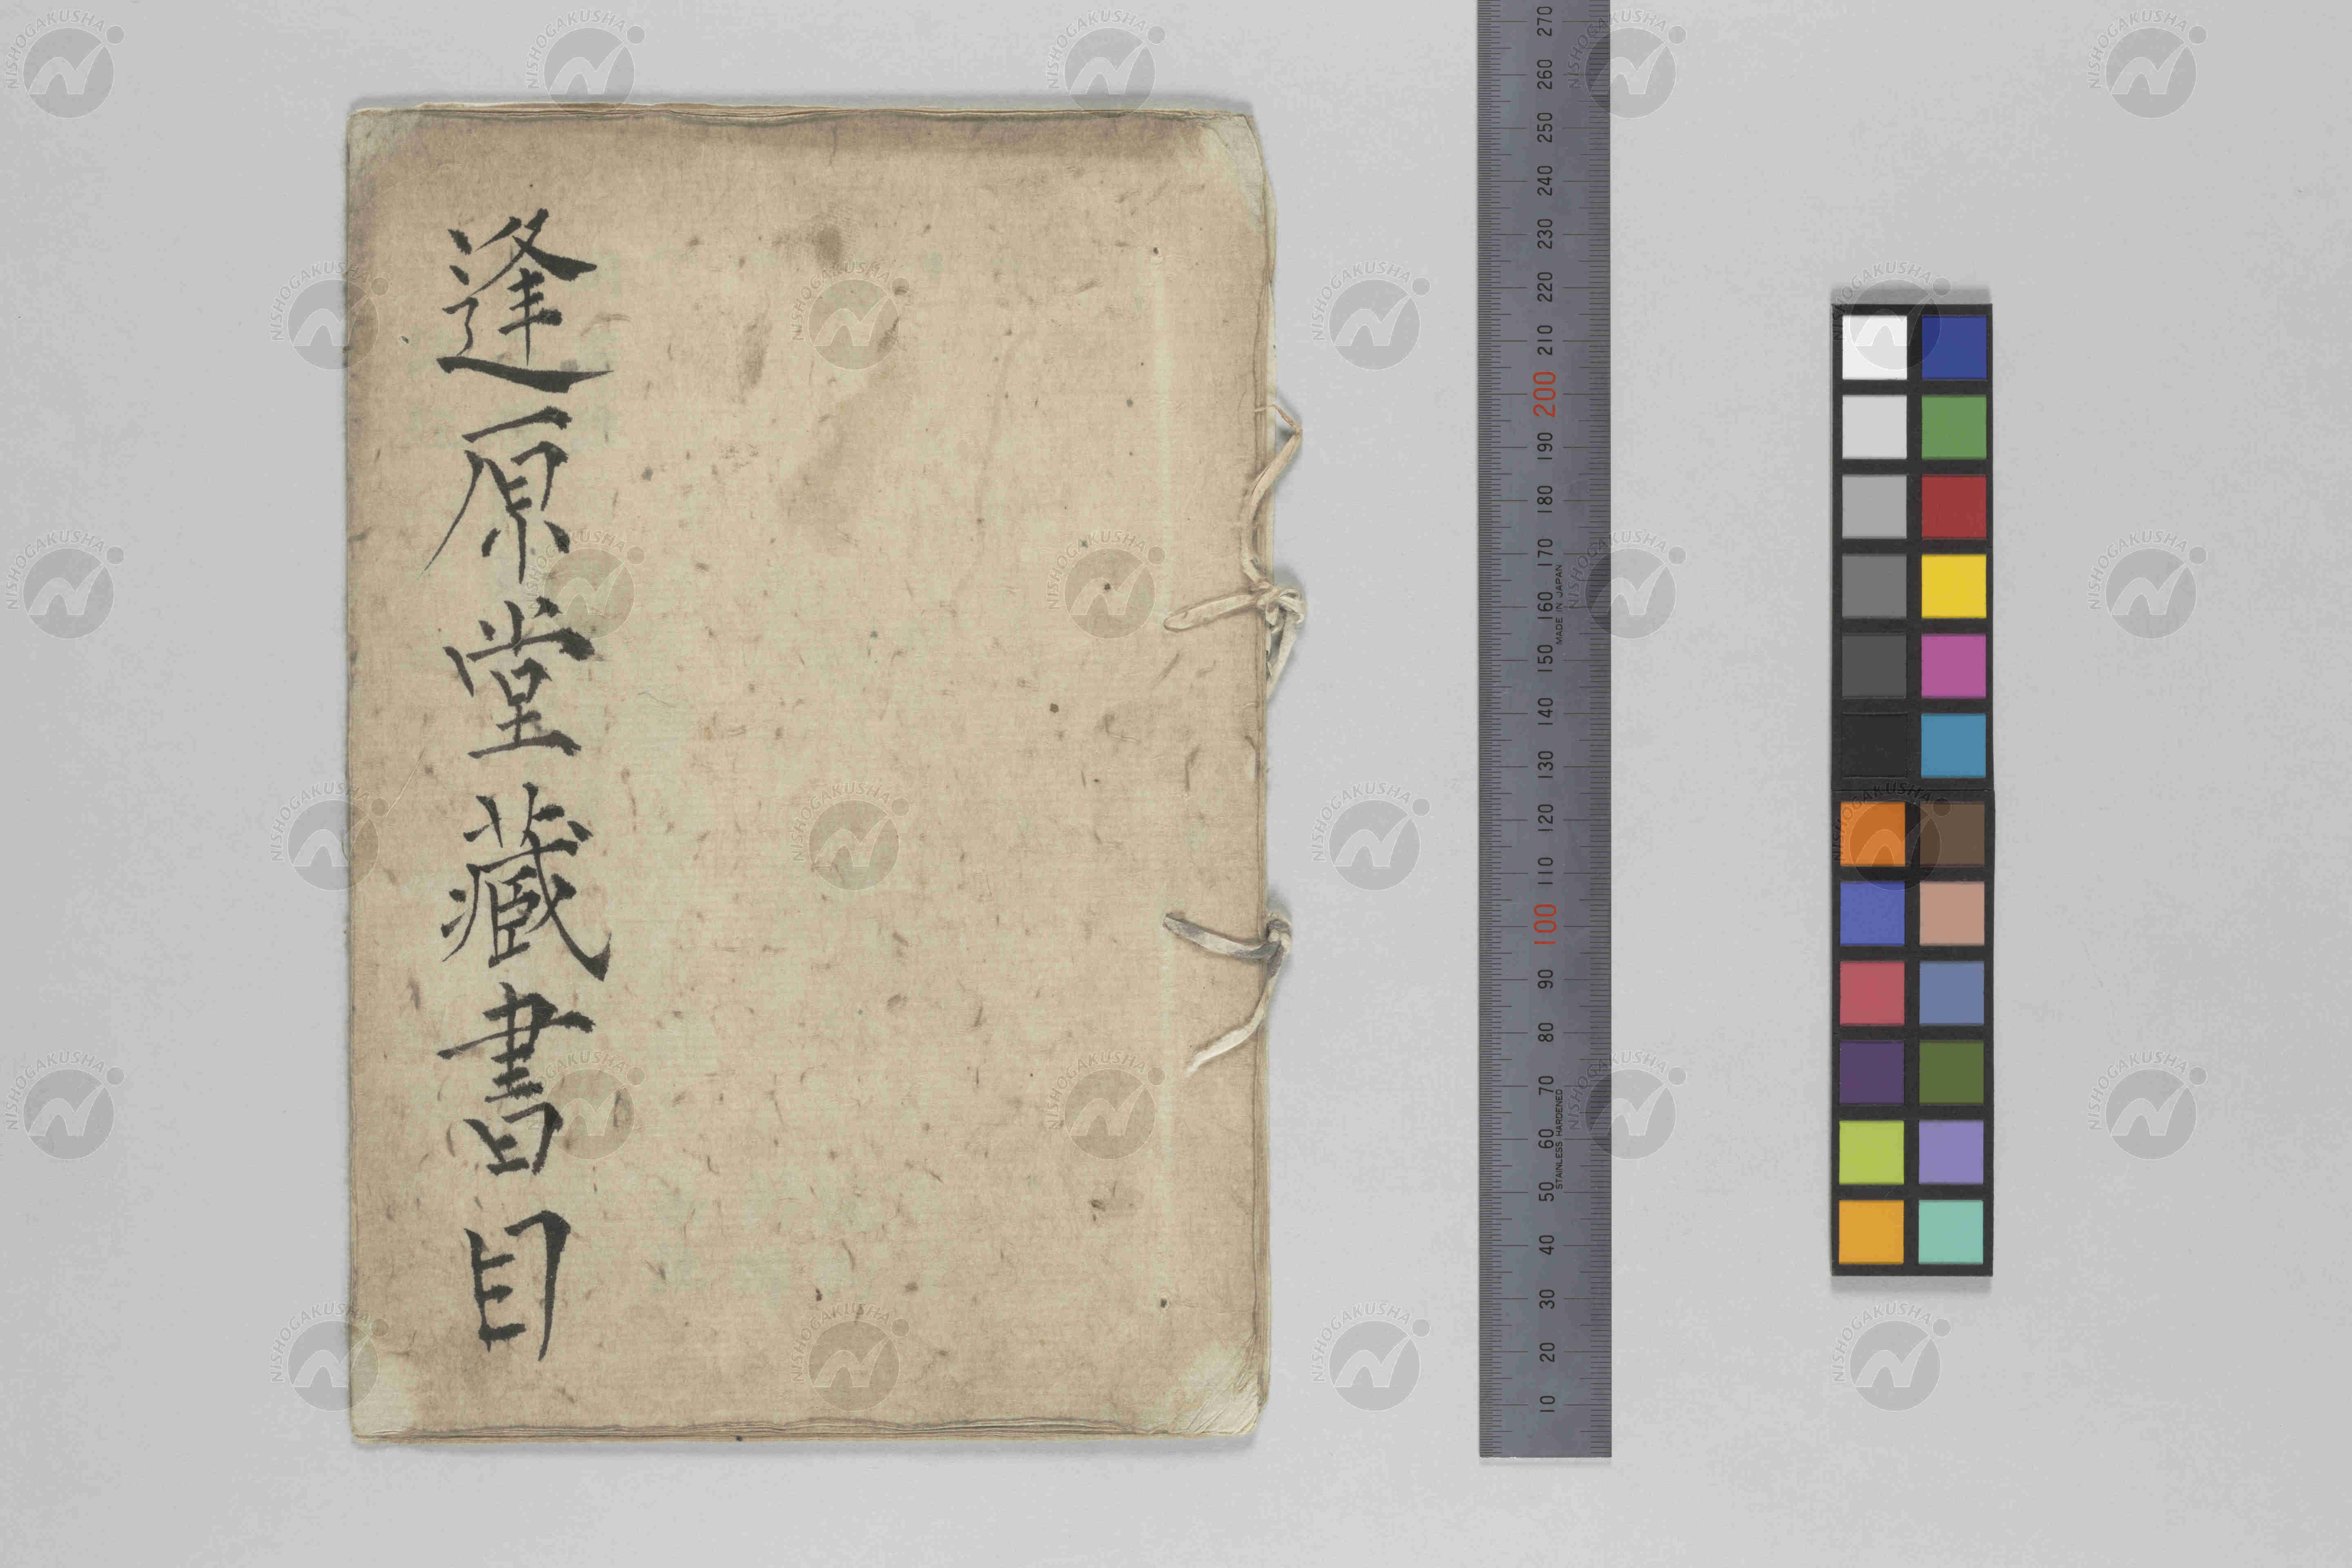 逢原堂藏書目
270
260
250
240
230
220
210
200
190
180
170
160
150
140
130
120
110
100
90
80
70
60
50
40
30
20
10
MADE IN JAPAN
STAINLESS HARDENED
NISHOGAKUSHA